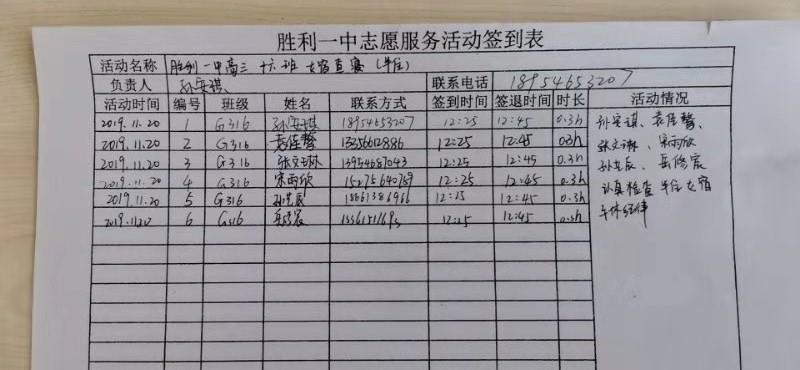 胜利一中志愿服务活动签到表
活动名称 胜利一中高三十六班女宿查寝（午休）
负责人 孙安祺 联系电话 18954653207
活动时间 编号 班级 姓名 联系方式 签到时间 签退时间 时长 活动情况
2019.11.20 1 G316 孙安祺 18954653207 12:25 12:45 0.3h
2019.11.20 2 G316 袁佳馨 13356612886 12:25 12:45 0.3h
2019.11.20 3 G316 张文琳 13954687043 12:25 12:45 0.3h
2019.11.20 4 G316 宋雨欣 12:25 12:45 0.3h
2019.11.20 5 G316 18661386966 12:25 12:45 0.3h
2019.11.20 6 G316 12:25 12:45 0.3h
孙安祺、袁佳馨、
张文琳、宋雨欣
认真检查 女宿
午休纪律